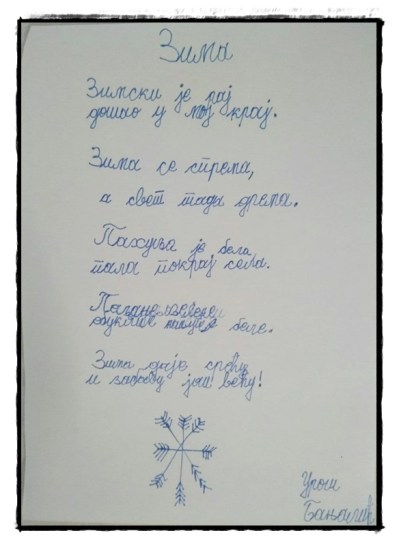 Зима
Зимски је рај
дошао у мој крај.
Зима се спрема,
а свет тада дрема.
Пахуља је бела
пала покрај села.
обукле беле.
Зима даје срећу
и забаву још већу!
Урош